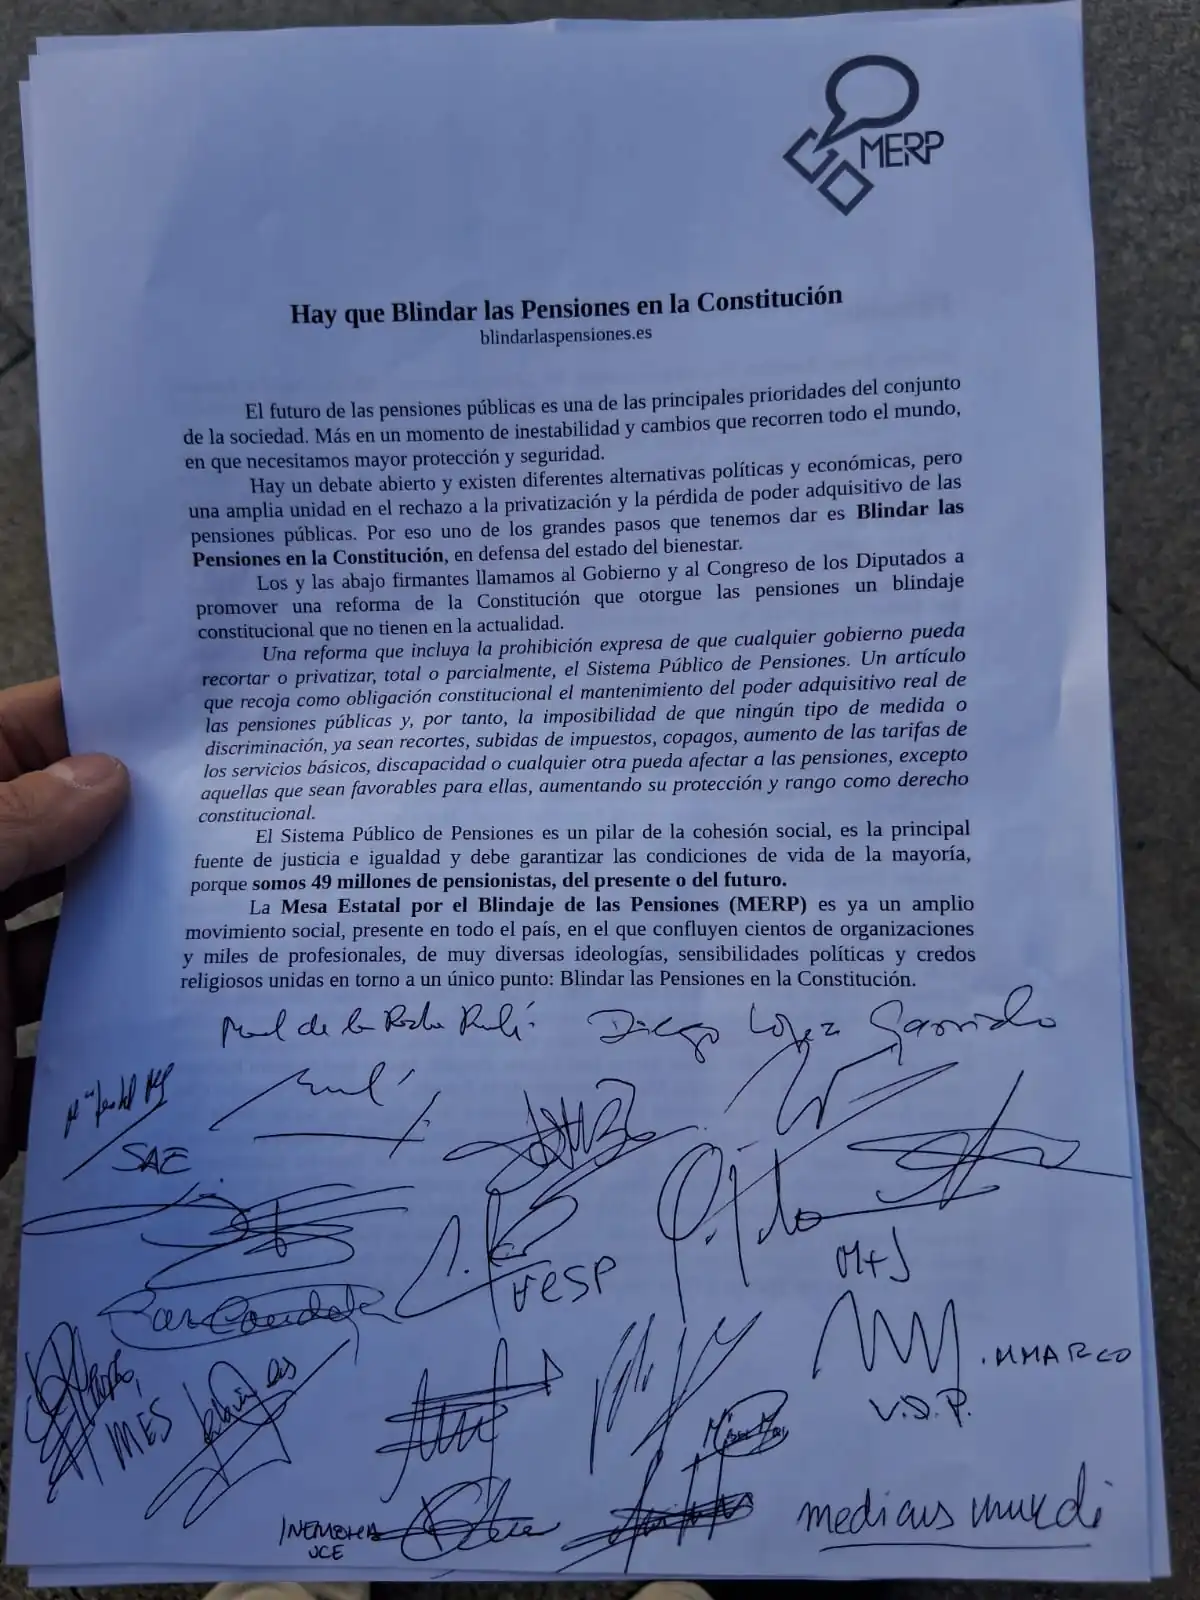 MERP
Hay que Blindar las Pensiones en la Constitución
blindarlaspensiones.es
El futuro de las pensiones públicas es una de las principales prioridades del conjunto
de la sociedad. Más en un momento de inestabilidad y cambios que recorren todo el mundo,
en que necesitamos mayor protección y seguridad.
Hay un debate abierto y existen diferentes alternativas políticas y económicas, pero
una amplia unidad en el rechazo a la privatización y la pérdida de poder adquisitivo de las
pensiones públicas. Por eso uno de los grandes pasos que tenemos dar es Blindar las
Pensiones en la Constitución, en defensa del estado del bienestar.
Los y las abajo firmantes llamamos al Gobierno y al Congreso de los Diputados a
promover una reforma de la Constitución que otorgue las pensiones un blindaje
constitucional que no tienen en la actualidad.
Una reforma que incluya la prohibición expresa de que cualquier gobierno pueda
recortar o privatizar, total o parcialmente, el Sistema Público de Pensiones. Un artículo
que recoja como obligación constitucional el mantenimiento del poder adquisitivo real de
las pensiones públicas y, por tanto, la imposibilidad de que ningún tipo de medida o
discriminación, ya sean recortes, subidas de impuestos, copagos, aumento de las tarifas de
los servicios básicos, discapacidad o cualquier otra pueda afectar a las pensiones, excepto
aquellas que sean favorables para ellas, aumentando su protección y rango como derecho
constitucional.
El Sistema Público de Pensiones es un pilar de la cohesión social, es la principal
fuente de justicia e igualdad y debe garantizar las condiciones de vida de la mayoría,
porque somos 49 millones de pensionistas, del presente o del futuro.
La Mesa Estatal por el Blindaje de las Pensiones (MERP) es ya un amplio
movimiento social, presente en todo el país, en el que confluyen cientos de organizaciones
y miles de profesionales, de muy diversas ideologías, sensibilidades políticas y credos
religiosos unidas en torno a un único punto: Blindar las Pensiones en la Constitución.
de la Diego López Garrido
SAE
M+J
MES
.MMARCO
UCE
medicus mundi